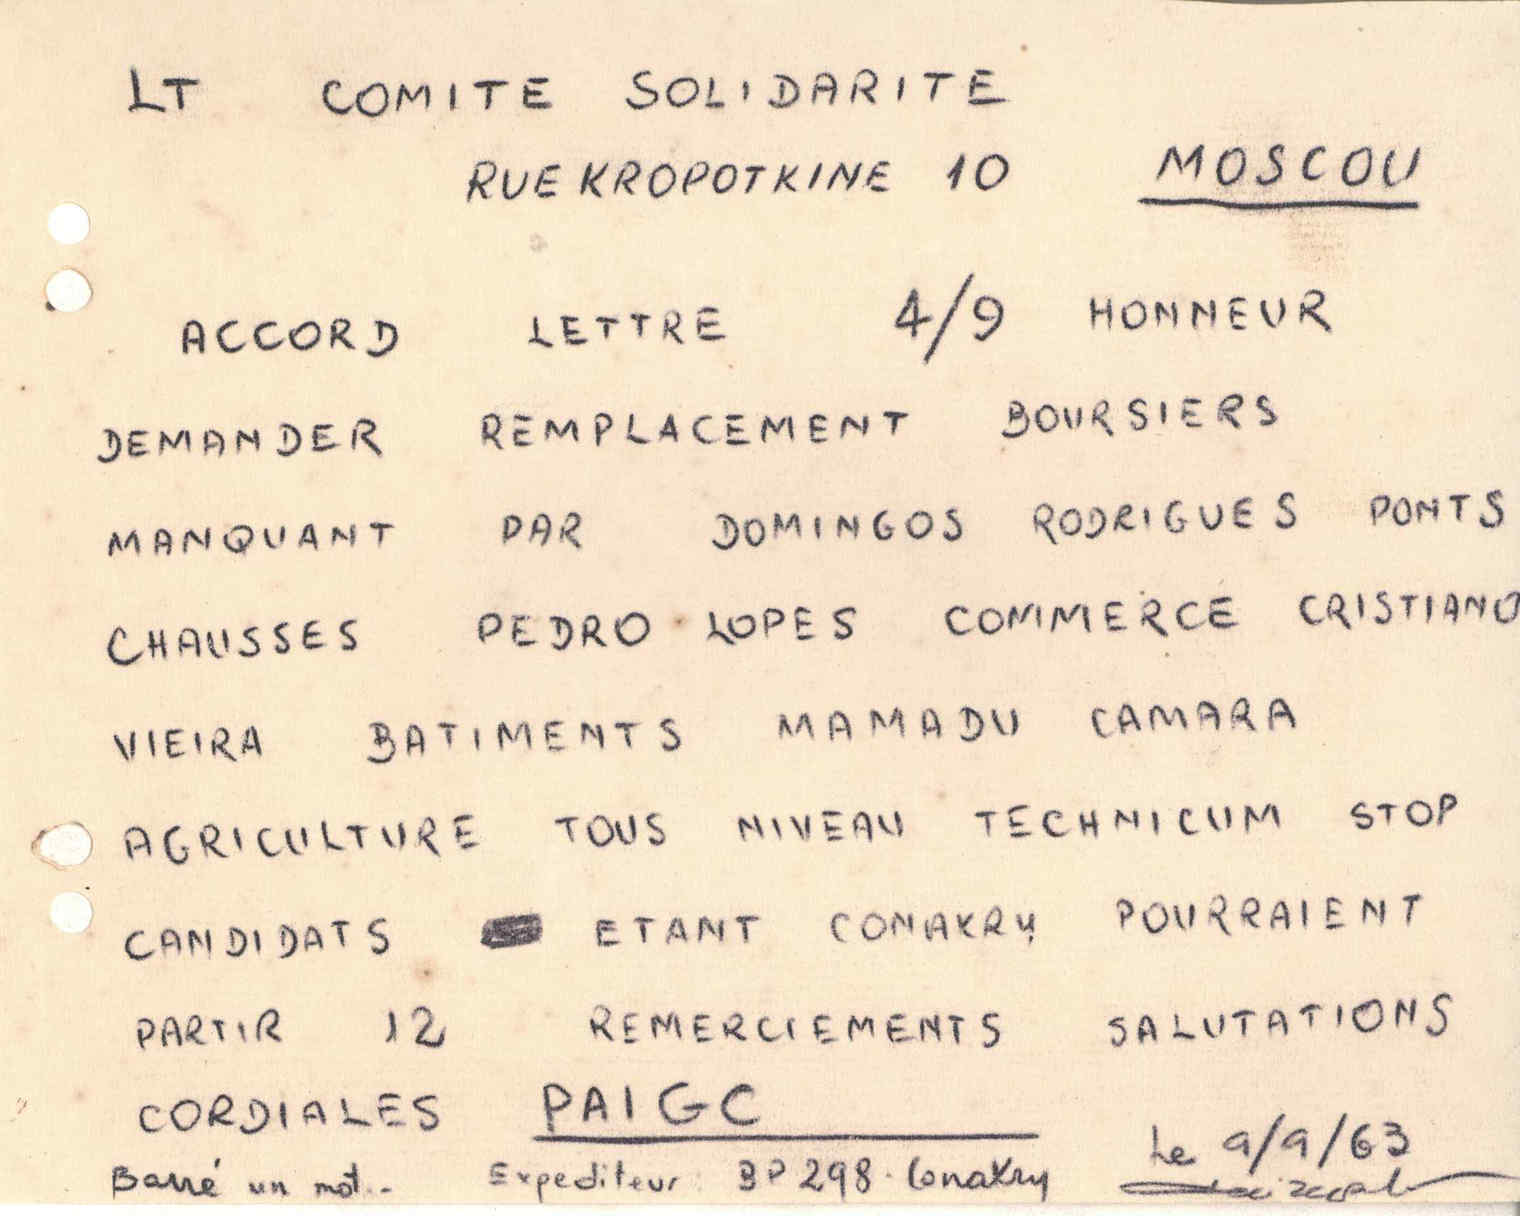 LT COMITE SOLIDARITE
RUE KROPOTKINE 10 MOSCOU
ACCORD LETTRE 4/9 HONNEUR
DEMANDER REMPLACEMENT BOURSIERS
MANQUANT PAR DOMINGOS RODRIGUES PONTS
CHAUSSES PEDRO LOPES COMMERCE CRISTIANO
VIEIRA BATIMENTS MAMADU CAMARA
AGRICULTURE TOUS NIVEAU TECHNICUM STOP
CANDIDATS ETANT CONAKRY POURRAIENT
PARTIR 12 REMERCIEMENTS SALUTATIONS
CORDIALES PAIGC
Le 9/9/63
Barré un mot.- Expediteur: BP 298 - Conakry